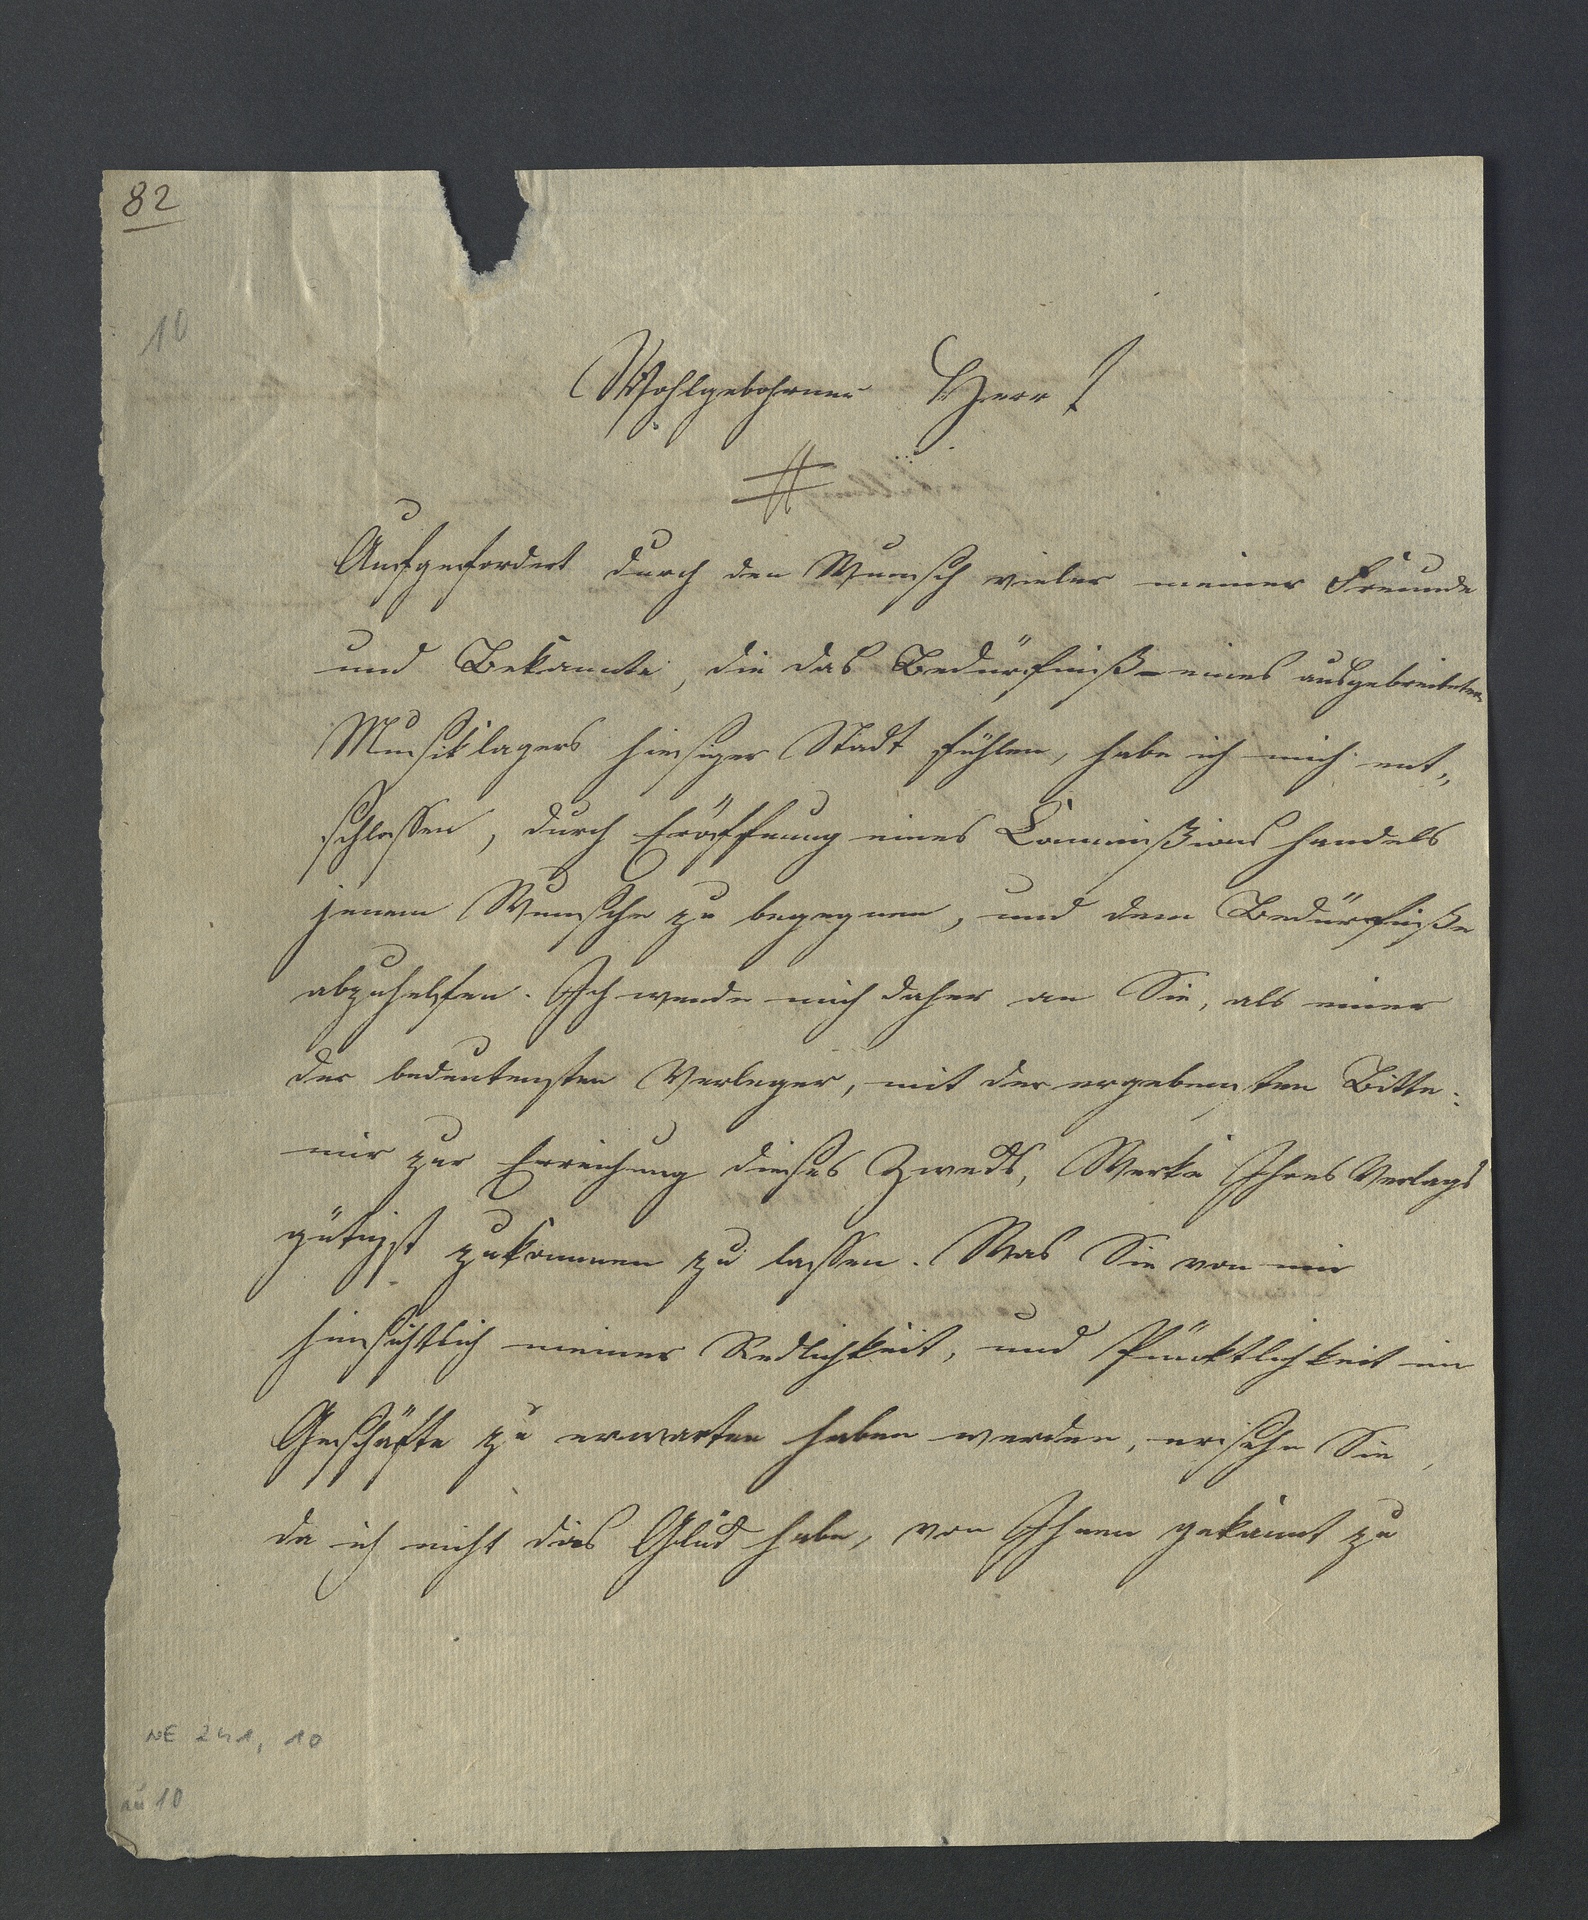 82
10
Wohlgebohrner Herr!
Aufgefordert durch den Wunsch vieler meiner Freunde
und Bekannte, die das Bedürfniß eines ausgebreiteten
Musiklagers hiesiger Stadt fühlen, habe ich mich ent„
schlossen, durch Eröffnung eines Commißions handels
jenem Wunsche zu begegnen, und dem Bedürfniße
abzuhelfen. Ich wende mich daher an Sie, als einer
der bedeutensten Verleger, mit der ergebensten Bitte:
mir zur Erreichung dieses Zwecks, Werke Ihres Verlags
gütigst zukommen zu lassen. Was Sie von mir
hinsichtlich meiner Redlichkeit, und Pünktlichkeit im
Geschäfte zu erwarten haben werden, ersehen Sie,
da ich nicht das Glück habe, von Ihnen gekannt zu
NE 241, 10
au 10